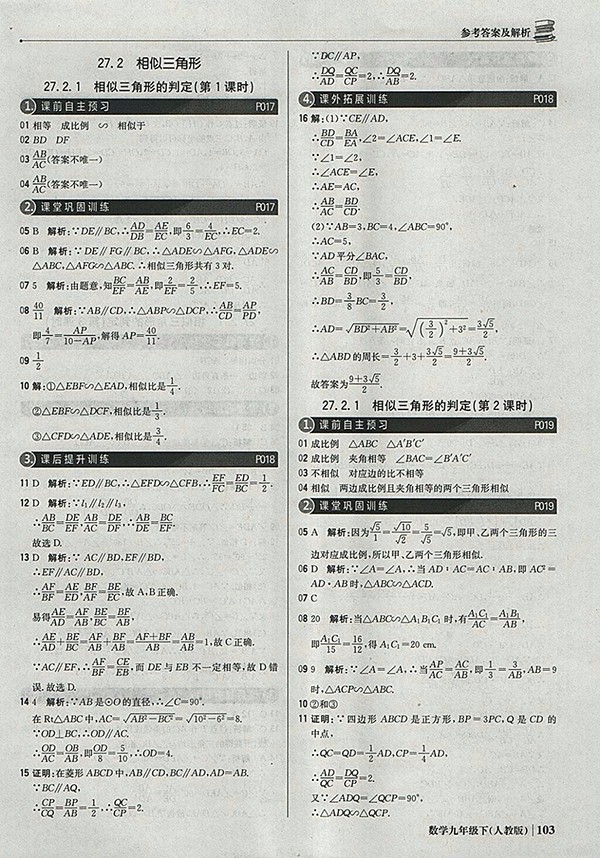 参考答案及解析
27.2 相似三角形
27.2.1 相似三角形的判定(第1课时)
1. 课前自主预习 P017
01 相等 成比例 ∽ 相似于
02 BD DF
03 AB/AC(答案不唯一)
04 AB/AC(答案不唯一)
2. 课堂巩固训练 P017
05 B 解析:∵DE∥BC,∴AD/DB=AE/EC,即6/3=4/EC,∴EC=2.
06 B 解析:∵DE∥FG∥BC,∴△ADE∽△AFG,△ADE∽
△ABC,△AFG∽△ABC.∴相似三角形共有3对.
07 5 解析:由题意,知BC/EF=AB/AE,即2/EF=2/5,∴EF=5.
08 40/11 解析:∵AB∥CD,∴△ABP∽△DCP,∴AB/CD=AP/PD,
即4/7=AP/10-AP,解得AP=40/11.
09 1/2
10 解:①△EBF∽△EAD,相似比是1/4.
②△EBF∽△DCF,相似比是1/3.
③△CFD∽△ADE,相似比是3/4.
3. 课后提升训练 P018
11 D 解析:∵ED∥BC,∴△EFD∽△CFB,∴EF/FC=ED/BC=1/2.
12 D 解析:∵l₁∥l₂∥l₃,
∴AB/BC=DE/EF,AB/AC=DE/DF,∴AB/DE=BC/EF=AC/DF.
故选D.
13 D 解析:∵AC∥BD,EF∥BD,
∴EF∥AC∥BD,
∴AE/EB=AF/FD,BF/AF=BE/AE,故A,B正确.
易得AE/AB=AF/AD,BE/AB=BF/BC,
∴AE/AD+BE/BC=AF/AB+BF/AB=AF+BF/AB=AB/AB=1,故C正确.
∵AC∥EF,∴AF/BF=CE/EB,而DE与EB不一定相等,故D错
误.故选D.
14 4 解析:∵AB是⊙O的直径,∴∠C=90°.
在Rt△ABC中,AC=√AB²-BC²=√10²-6²=8.
∵OD⊥BC,∴OD∥AC.
∴OD/AC=OB/AB,即OD/8=5/10,∴OD=4.
15 证明:在菱形ABCD中,AB∥CD,BC∥AD,AD=AB.
∵BC∥AD,
∴CP/CQ=BP/AB=1/2.∴QC/CP=2.
∵DC∥AP,
∴DA/DQ=QC/CP=2.∴DA/DQ=2.
4. 课外拓展训练 P018
16 解:(1)∵CE∥AD,
∴BD/CD=BA/EA,∠2=∠ACE,∠1=∠E.
∵∠1=∠2,
∴∠ACE=∠E,
∴AE=AC,
∴AB/AC=BD/CD.
(2)∵AB=3,BC=4,∠ABC=90°,
∴AC=5,
∵AD平分∠BAC,
∴AC/AB=CD/BD,即5/3=CD/BD,
∴BD=3/8BC=3/2,
∴AD=√BD²+AB²=√(3/2)²+3²=3√5/2.
∴△ABD的周长=3/2+3+3√5/2=9+3√5/2.
故答案为9+3√5/2.
27.2.1 相似三角形的判定(第2课时)
1. 课前自主预习 P019
01 成比例 △ABC △A′B′C′
02 成比例 夹角相等 ∠BAC=∠B′A′C′
03 不相似 对应边的比不相等
04 相似 两边成比例且夹角相等的两个三角形相似
2. 课堂巩固训练 P019
05 A 解析:因为√5/1=√10/√2=5/√5=√5,即甲、乙两个三角形的三
边对应成比例,所以甲、乙两个三角形相似.
06 D 解析:∵∠A=∠A,∴当AD∶AC=AC∶AB,即AC²=
AD·AB时,△ABC∽△ACD.
07 C
08 20 解析:当△ABC∽△A₁B₁C₁时,有A₁C₁/AC=A₁B₁/AB,
即A₁C₁/15=16/12,得A₁C₁=20 cm.
09 9 解析:∵∠A=∠A,∴当AP/AC=AC/AB,即1/3=3/AB,AB=9
时,△ACP∽△ABC.
10 ②和③
11 证明:∵四边形ABCD是正方形,BP=3PC,Q是CD的
中点,
∴QC=QD=1/2AD,CP=1/4AD,
∴AD/QC=DQ/CP=2.
又∵∠ADQ=∠QCP,
∴△ADQ∽△QCP.
数学九年级下(人教版) 103